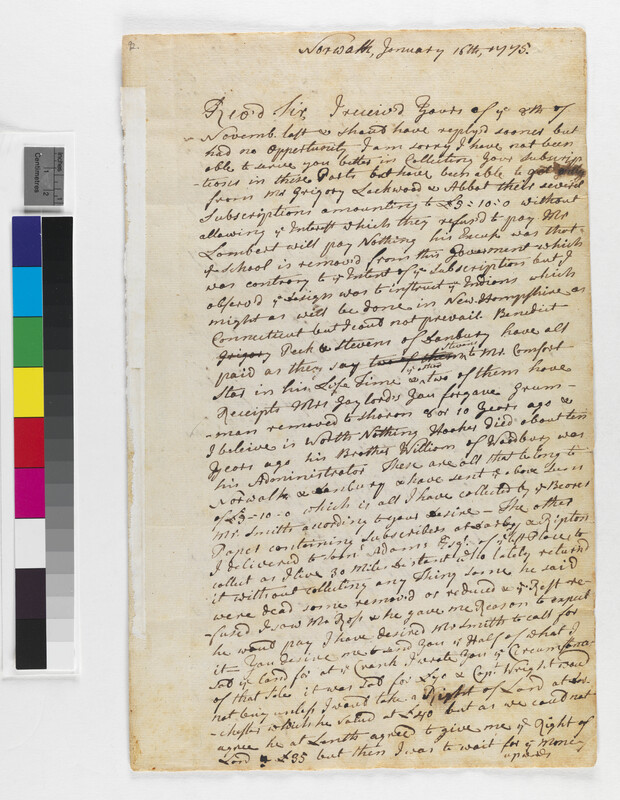 2.
Norwalk, January 16th, 1775.
Rev'd Sir I receiv'd Yours of ye 8th of
Novemb. last & shou'd have reply'd sooner but
had no Opportunity I am sorry I have not been
able to serve you better in Collecting Your Subscrip-
-tions in these Parts but have been able to get only
from Mr Grigory Lockwood & Abbot their several
Subscriptions amounting to £3=10=0 without
allowing ye Interest which they refus'd to pay Mr
Lambert will pay Nothing his Excuse was that
ye School is remov'd from this Goverment which
was contrary to ye Intent of ye Subscription but I
observ'd ye Design was to instruct ye Indians which
might as will be done in New Hampshire as
Connecticut but I coud not prevail Benedict
Grigory Peck & Stevens of Danbury have all
paid as they say two of them to Mr Comfort
Stevens
ye other
Star in his Life Time & two of them have
Receipts Mrs Gaylords You forgave Drum-
-man remov'd to Sharon 8 or 10 Years ago &
I beleive is Worth Nothing Hooker Died about ten
Years ago his Brother William of Wodbury was
his Administrator These are all that belong to
Norwalk & Danbury & have sent ye above Sum
of £3-10-0 which is all I have collected by ye Bearer
Mr. Smith according to your Desire - The other
Paper containing Subscribers at Darby & Ripton
I deliver'd to Adams Esqr. of yt Place to
collect as I live 30 Miles Distant who lately return'd
it without collecting any Thing some he said
were dead some remov'd or reduced & ye Rest re-
-fused I saw Mr Ross & he gave me Reason to expect
he would pay I have desired Mr Smith to call for
it - You desire me to send You ye Half of what I
sold ye Land for at ye I wrote You ye Circumstances
of that Sale it was sold for £90 & Capt Wright woud
not buy unless I woud take a Right of Land at Dor-
chester which he valued at £40 but as we could not
agree he at Lenth agreed to give me ye Right of
Land & £35 but then I was to wait for ye Money
upwards